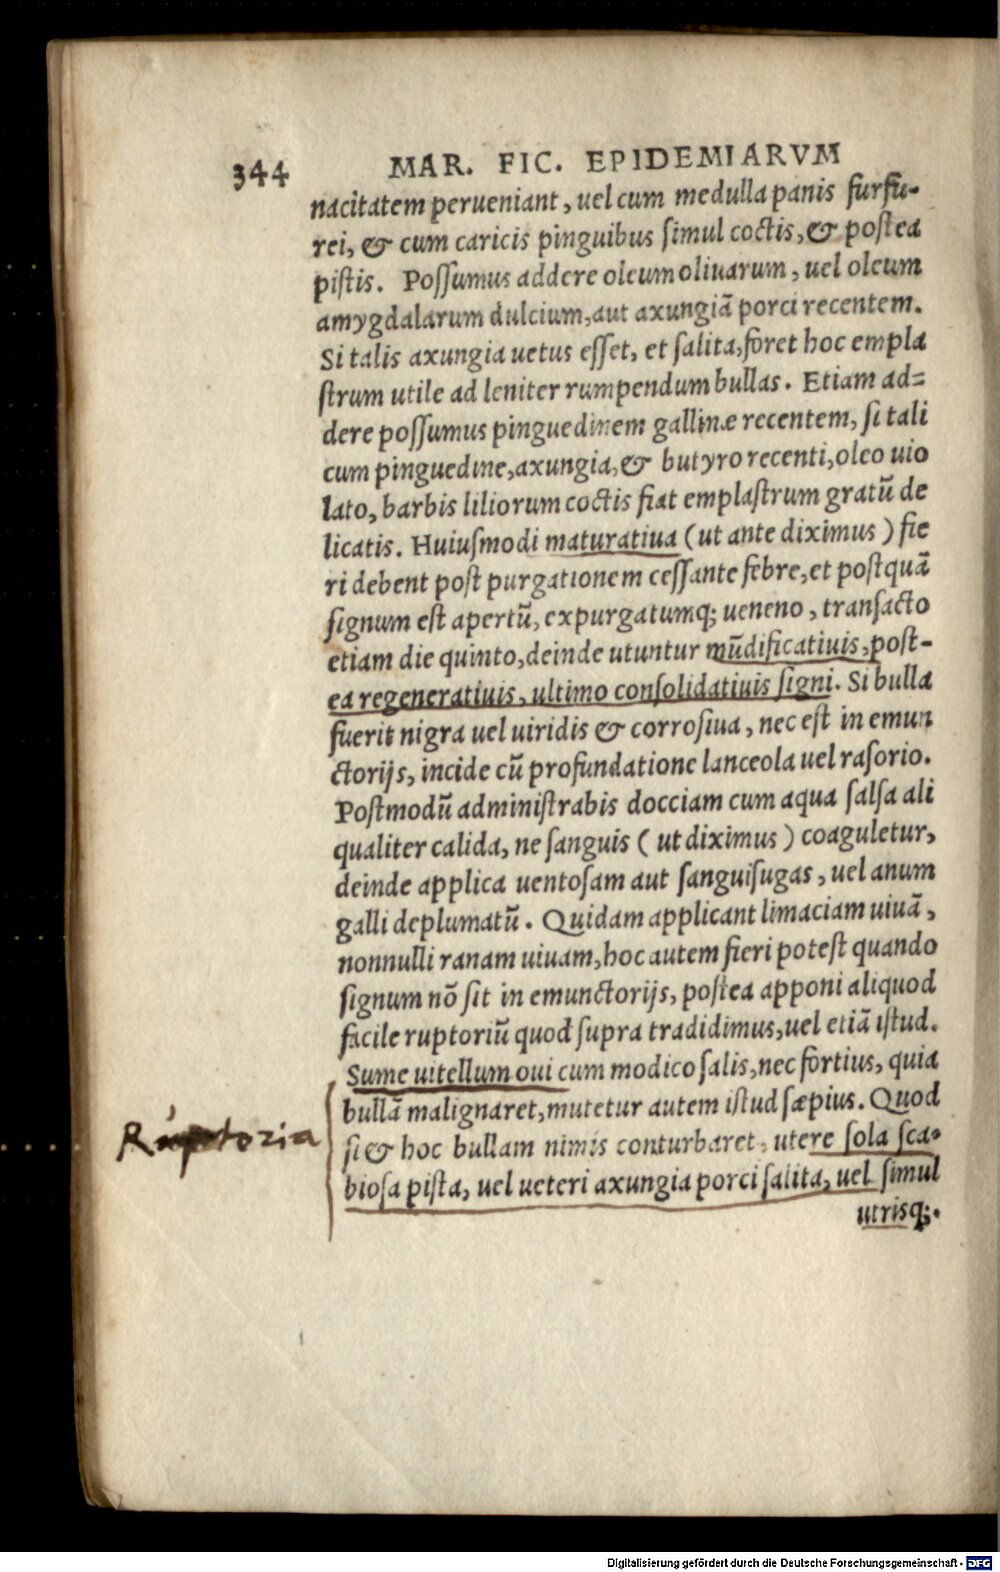 344 MAR. FIC. EPIDEMIARVM
nacitatem perueniant, uel cum medulla panis furfu-
rei, & cum caricis pinguibus ſimul coctis, & poſtea
piſtis. Poſſumus addere oleum oliuarum, uel oleum
amygdalarum dulcium, aut axungiã porci recentem.
Si talis axungia uetus eſſet, et ſalita, foret hoc empla
ſtrum utile ad leniter rumpendum bullas. Etiam ad=
dere poſſumus pinguedinem gallinæ recentem, ſi tali
cum pinguedine, axungia, & butyro recenti, oleo uio
lato, barbis liliorum coctis fiat emplaſtrum gratũ de
licatis. Huiuſmodi maturatiua (ut ante diximus) fie
ri debent poſt purgationem ceſſante febre, et poſtquã
ſignum eſt apertũ, expurgatumq; ueneno, tranſacto
etiam die quinto, deinde utuntur mũdificatiuis, poſt-
ea regeneratiuis, ultimo conſolidatiuis ſigni. Si bulla
fuerit nigra uel uiridis & corroſiua, nec eſt in emun
ctorijs, incide cũ profundatione lanceola uel raſorio.
Poſtmodũ adminiſtrabis docciam cum aqua ſalſa ali
qualiter calida, ne ſanguis (ut diximus) coaguletur,
deinde applica uentoſam aut ſanguiſugas, uel anum
galli deplumatũ. Quidam applicant limaciam uiuã,
nonnulli ranam uiuam, hoc autem fieri poteſt quando
ſignum nõ ſit in emunctorijs, poſtea apponi aliquod
facile ruptoriũ quod ſupra tradidimus, uel etiã iſtud.
Sume uitellum oui cum modico ſalis, nec fortius, quia
bullã malignaret, mutetur autem iſtud ſæpius. Quod
ſi & hoc bullam nimis conturbaret, utere ſola ſca-
bioſa piſta, uel ueteri axungia porci ſalita, uel ſimul
utrisq;.
Ruptoria
Digitalisierung gefördert durch die Deutsche Forschungsgemeinschaft - DFG